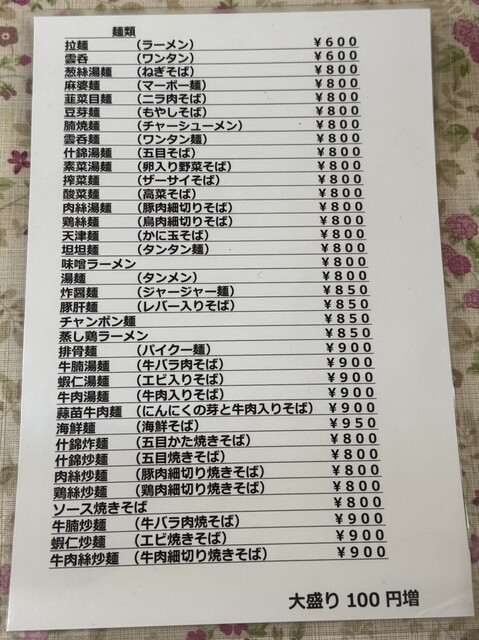 麺類
拉麺 (ラーメン) ￥600
雲呑 (ワンタン) ￥600
葱絲湯麺 (ねぎそば) ￥800
麻婆麺 (マーボー麺) ￥800
韮菜目麺 (ニラ肉そば) ￥800
豆芽麺 (もやしそば) ￥800
腩焼麺 (チャーシューメン) ￥800
雲呑麺 (ワンタン麺) ￥800
什錦湯麺 (五目そば) ￥800
素菜湯麺 (卵入り野菜そば) ￥800
搾菜麺 (ザーサイそば) ￥800
酸菜麺 (高菜そば) ￥800
肉絲湯麺 (豚肉細切りそば) ￥800
鶏絲麺 (鳥肉細切りそば) ￥800
天津麺 (かに玉そば) ￥800
坦坦麺 (タンタン麺) ￥800
味噌ラーメン ￥800
湯麺 (タンメン) ￥800
炸醤麺 (ジャージャー麺) ￥850
豚肝麺 (レバー入りそば) ￥850
チャンポン麺 ￥850
蒸し鶏ラーメン ￥850
排骨麺 (パイクー麺) ￥900
牛腩湯麺 (牛バラ肉そば) ￥900
蝦仁湯麺 (エビ入りそば) ￥900
牛肉湯麺 (牛肉入りそば) ￥900
蒜苗牛肉麺 (にんにくの芽と牛肉入りそば) ￥900
海鮮麺 (海鮮そば) ￥950
什錦炸麺 (五目かた焼きそば) ￥800
什錦炒麺 (五目焼きそば) ￥800
肉絲炒麺 (豚肉細切り焼きそば) ￥800
鶏絲炒麺 (鶏肉細切り焼きそば) ￥800
ソース焼きそば ￥800
牛腩炒麺 (牛バラ肉焼そば) ￥900
蝦仁炒麺 (エビ焼きそば) ￥900
牛肉絲炒麺 (牛肉細切り焼きそば) ￥900
大盛り 100 円増